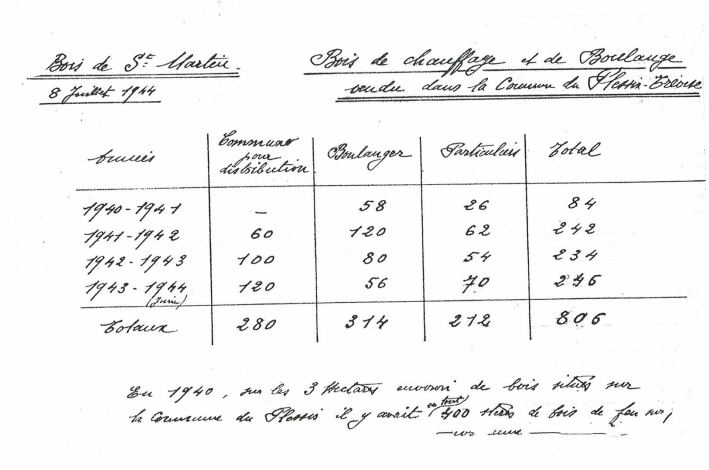 Bois de St Martin.
8 Juillet 1944
Bois de chauffage et de Boulange
vendu dans la Commune du Plessis-Trévise
Années
Commune pour distribution
Boulanger
Particuliers
Total
1940-1941 — 58 26 84
1941-1942 60 120 62 242
1942-1943 100 80 54 234
1943-1944 (Juin) 120 56 70 246
Totaux 280 314 212 806
En 1940, sur les 3 Hectares environ de bois situés sur
la Commune du Plessis il y avait en tout 400 stères de bois de feu sur